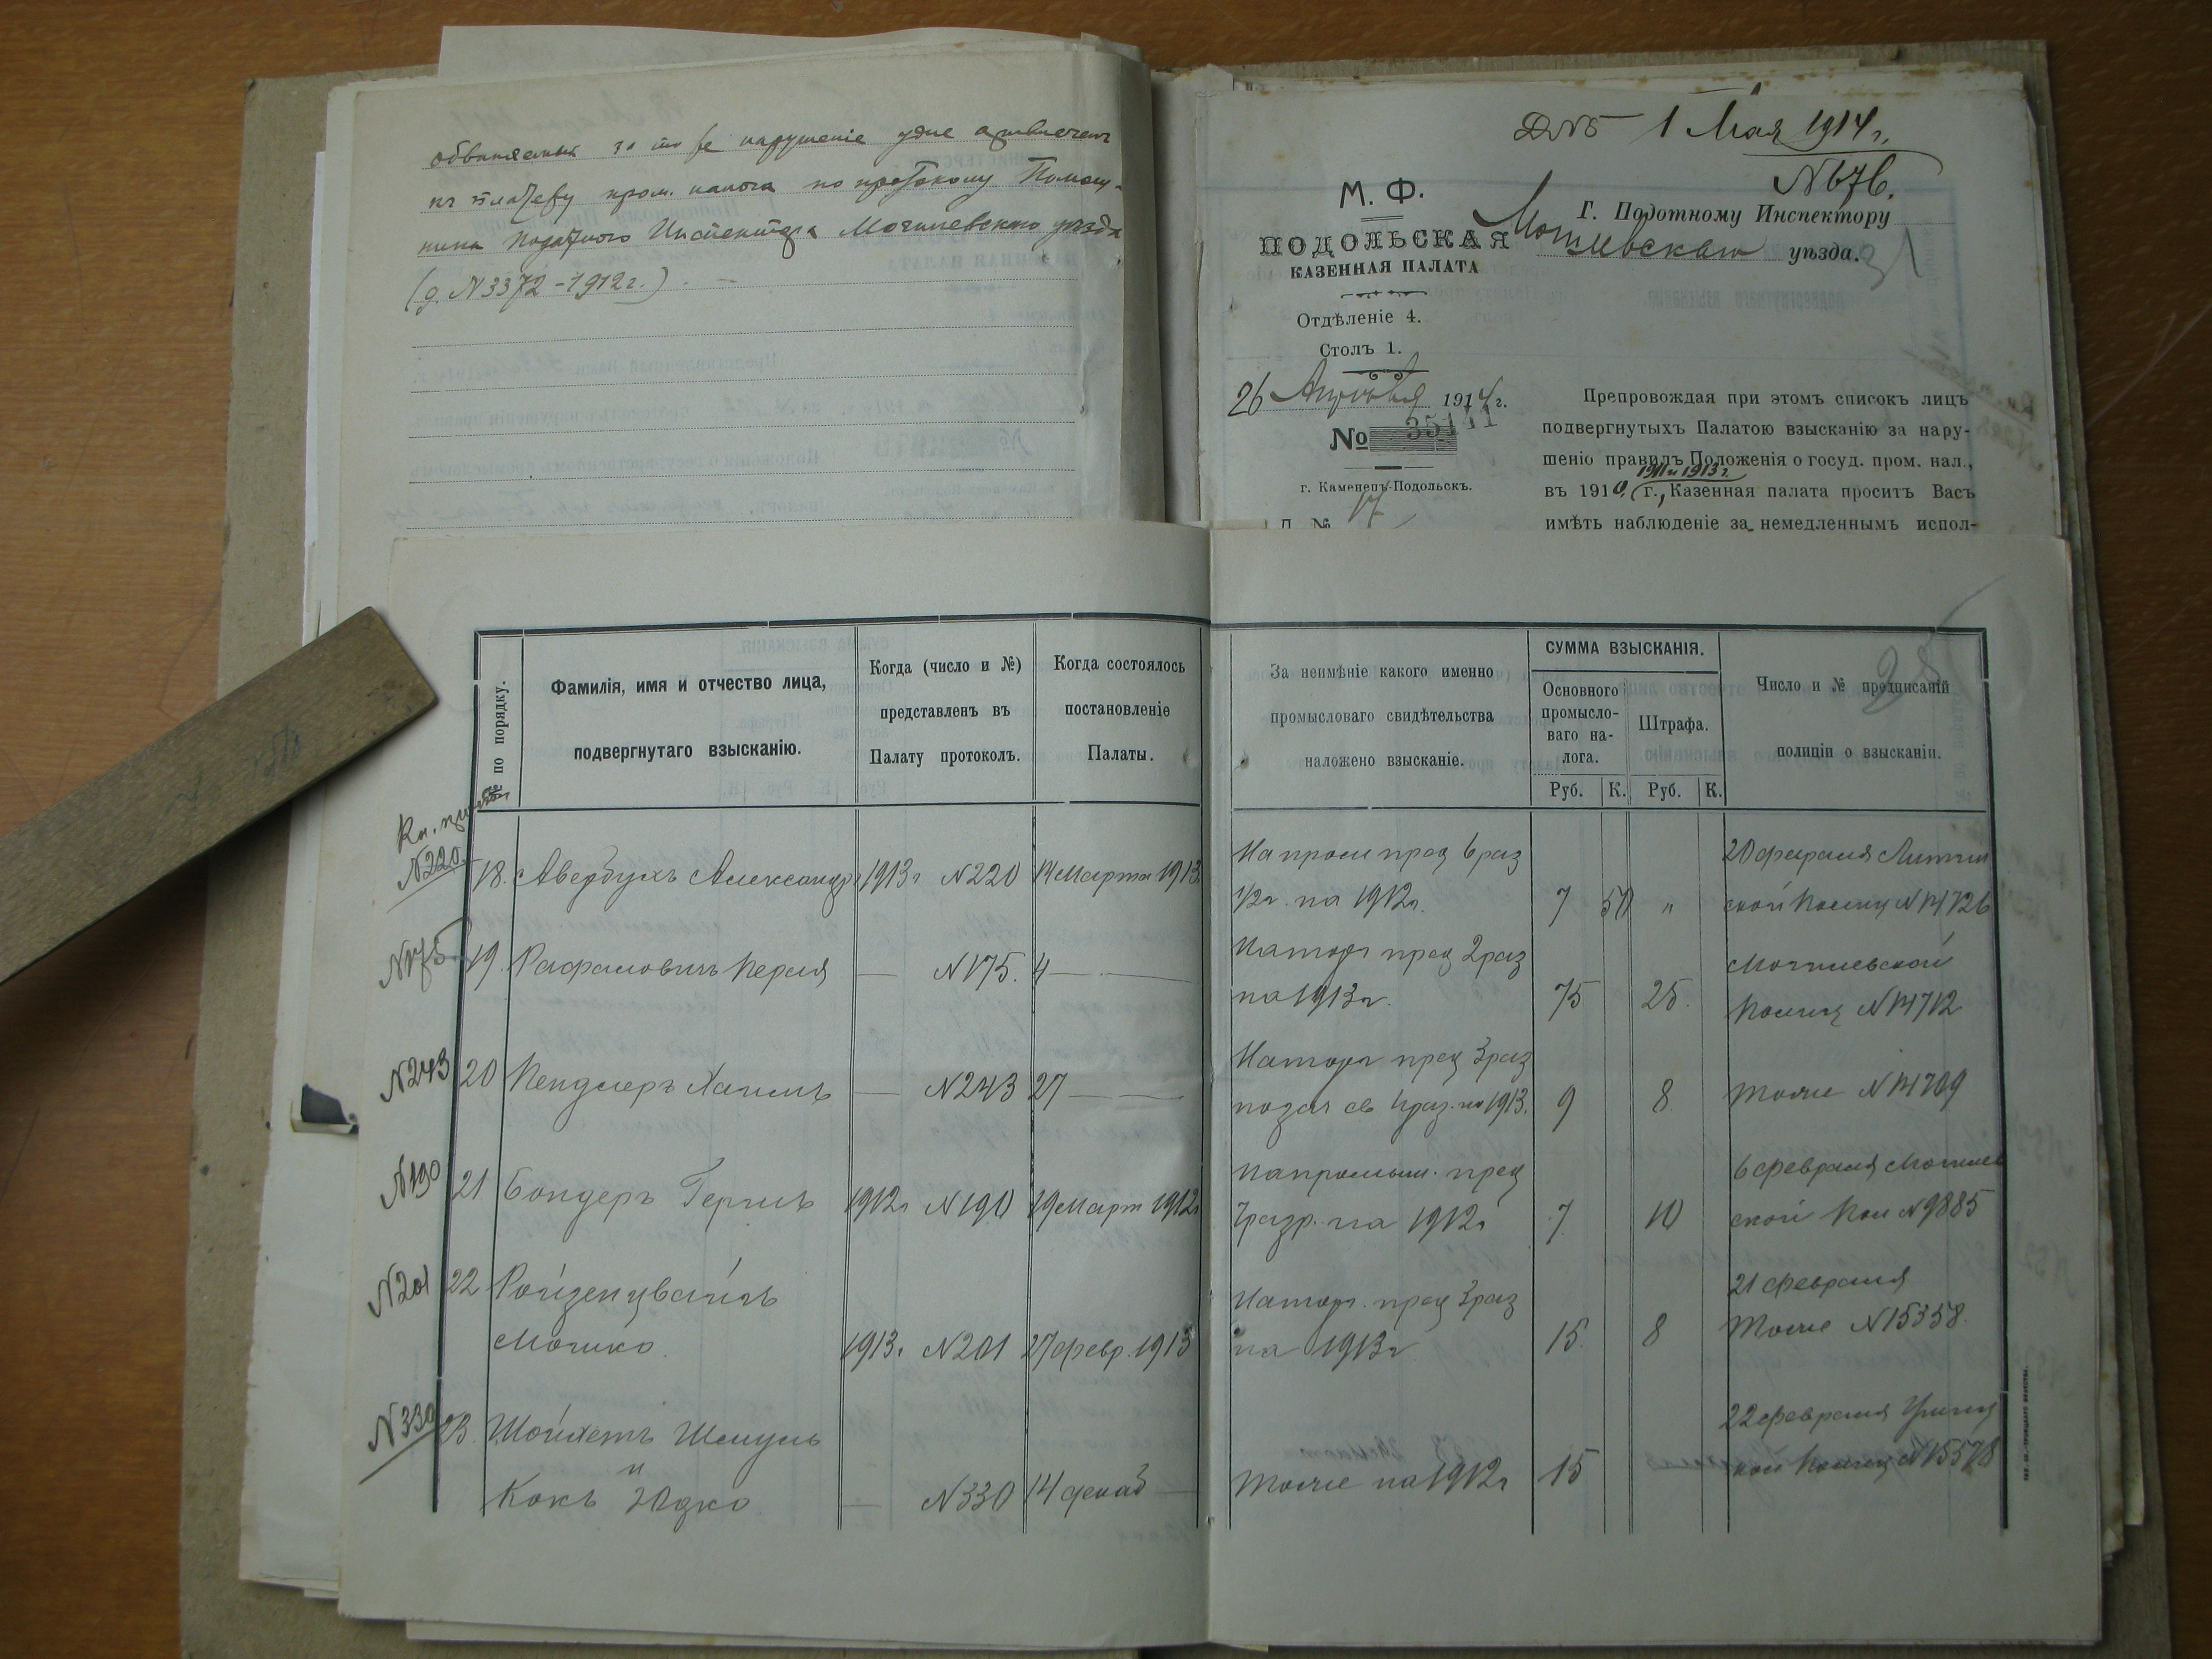 обвиняемый за то же нарушеніе уже привлеченъ
къ платежу пром. налога по протоколу Помощ-
ника Податного Инспектора Могилевскаго уѣзда
(д. N 3372 - 1912 г.). -
1 Мая 1914 г.
N 676.
М. Ф.
ПОДОЛЬСКАЯ
КАЗЕННАЯ ПАЛАТА
Отдѣленіе 4.
Столъ 1.
26 Апрѣля 1914 г.
№ 35141
г. Каменецъ-Подольскъ.
Д. № 17
Г. Подотному Инспектору
Могилевскаго уѣзда.
Препровождая при этомъ списокъ лицъ
подвергнутыхъ Палатою взысканію за нару-
шеніо правилъ Положенія о госуд. пром. нал.,
1911 и 1913 г.
въ 1910 г., Казенная палата проситъ Васъ
имѣть наблюденіе за немедленнымъ испол-
№ по порядку.
Фамилія, имя и отчество лица,
подвергнутаго взысканію.
Когда (число и №)
представленъ въ
Палату протоколъ.
Когда состоялось
постановленіе
Палаты.
За неимѣніе какого именно
промысловаго свидѣтельства
наложено взысканіе.
СУММА ВЗЫСКАНІЯ.
Основного
промысло-
ваго на-
лога.
Штрафа.
Руб. К. Руб. К.
Число и № предписаній
полиціи о взысканіи.
28
N220 18. Авербухъ Александр 1913 г N220 14 Марта 1913 На пром пред 6 раз
1/2 г. на 1912 г. 7 50 "
20 февраля Литин
ской Полиц N 14726
N175 19. Рафаловичъ Перля — N175. 4 — — На торг пред 2 раз
на 1913 г. 75 25.
Могилевской
Полиц N 14712
N243 20 Пендлеръ Хаимъ — N243 27 — — На торг пред 3 раз
на 1913. 9 8. Тоже N 14709
N190 21 Бондеръ Гершъ 1912 г N190 19 Март 1912 г На промышл. пред
7 разр. на 1912 г 7. 10
6 февраля Могилев
ской Пол N 9885
N201 22 Ройзенцвайгъ
Мошко. 1913. N201 27 февр. 1913 На торг. пред 3 раз
на 1913 г 15. 8
21 февраля
Тоже N 15358.
N330 23. Шойхетъ Шмуль
и
Кокъ Юдко — N330 14 декаб — Тоже на 1912 г 15
22 февраля
Полиц N 15578